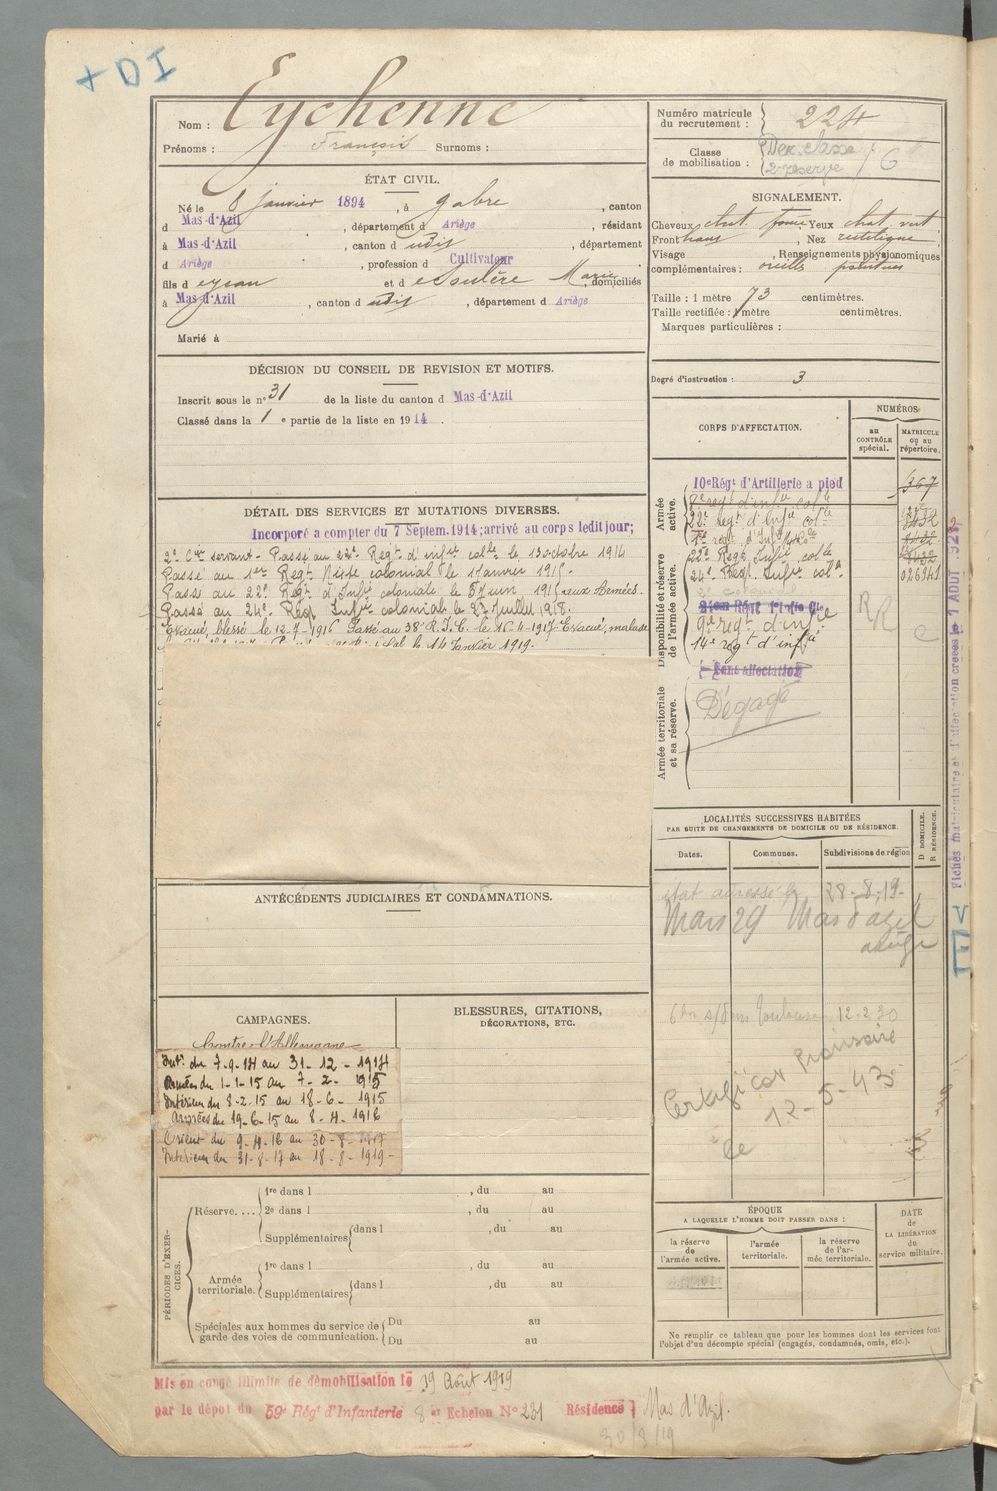 + DI
Nom : Eychenne
Prénoms : François Surnoms :
ÉTAT CIVIL.
Né le 8 janvier 1894, à gabre, canton
d Mas-d'Azil, département d Ariège, résidant
à Mas-d'Azil, canton d udit, département
d Ariège, profession d Cultivateur
fils d et d Marie, domiciliés
à Mas-d'Azil, canton d udit, département d Ariège
Marié à
DÉCISION DU CONSEIL DE REVISION ET MOTIFS.
Inscrit sous le n° 31 de la liste du canton d Mas-d'Azil
Classé dans la 1e partie de la liste en 1914.
DÉTAIL DES SERVICES ET MUTATIONS DIVERSES.
Incorporé a compter du 7 Septem. 1914; arrivé au corps ledit jour;
2e Cer servant - Passé au 22e Regt. d'infie colle le 13 octobre 1914
Passé au 1er Regt. Mixte colonial le 1 Janvier 1915.
Passé au 22e Regt. d'Infie coloniale le 5 Juin 1915 (aux Armées.
Passé au 24e Regt Infie coloniale le 27 Juillet 1918.
Evacué, blessé le 12-7-1916 Passé au 38e R.I.C. le 16-4-1917 Evacué, malade
le 14 Janvier 1919.
ANTÉCÉDENTS JUDICIAIRES ET CONDAMNATIONS.
CAMPAGNES.
Contre l'Allemagne
Intr. du 7-9-14 au 31-12-1914
Armées du 1-1-15 au 7-2-1915
Intérieur du 8-2-15 au 18-6-1915
Armées du 19-6-15 au 8-4-1916
Orient du 9-4-16 au 30-8-1917
Intérieur du 31-8-17 au 18-8-1919-
BLESSURES, CITATIONS,
DÉCORATIONS, ETC.
PÉRIODES D'EXERCICES.
Réserve....
1re dans l , du au
2e dans l , du au
Supplémentaires dans l , du au
Armée territoriale.
1re dans l , du au
Supplémentaires dans l , du au
Spéciales aux hommes du service de garde des voies de communication.
Du au
Du au
Numéro matricule du recrutement : 224
Classe de mobilisation : Der classe 2 reserve / 6
SIGNALEMENT.
Cheveux chat. foncé Yeux chat vert
Front haut, Nez rectiligne,
Visage , Renseignements physionomiques
complémentaires : oreilles
Taille : 1 mètre 73 centimètres.
Taille rectifiée : 1 mètre centimètres.
Marques particulières :
Degré d'instruction : 3
CORPS D'AFFECTATION.
NUMÉROS
au CONTRÔLE spécial.
MATRICULE ou au répertoire.
Armée active.
10e Régt d'Artillerie a pied 367
22e regt d'Infie colle
22e Regt Infie colle
24e Regt Infie colle
Disponibilité et réserve de l'armée active.
9e regt d'infie
14e regt d'infie
RR
Sans affectation
Armée territoriale et sa réserve.
Dégagé
LOCALITÉS SUCCESSIVES HABITÉES
PAR SUITE DE CHANGEMENTS DE DOMICILE OU DE RÉSIDENCE.
Dates. Communes. Subdivisions de région D DOMICILE. R RÉSIDENCE.
état adressé le 28-8-19-
Mars 29 Mas d'azil
ariège
Toulouse 12.2.30
Certificat provisoire
le 12-5-43
ÉPOQUE
A LAQUELLE L'HOMME DOIT PASSER DANS :
la réserve de l'armée active.
l'armée territoriale.
la réserve de l'armée territoriale.
DATE de LA LIBÉRATION du service militaire.
Ne remplir ce tableau que pour les hommes dont les services font
l'objet d'un décompte spécial (engagés, condamnés, omis, etc.).
Mis en congé illimité de démobilisation le 19 Août 1919
par le dépot du 59e Régt d'Infanterie 8 er Echelon N° 231 Résidence } Mas d'Azil.
30/8/19
Fiches matriculaire et d'affection creees le 7 AOUT 192